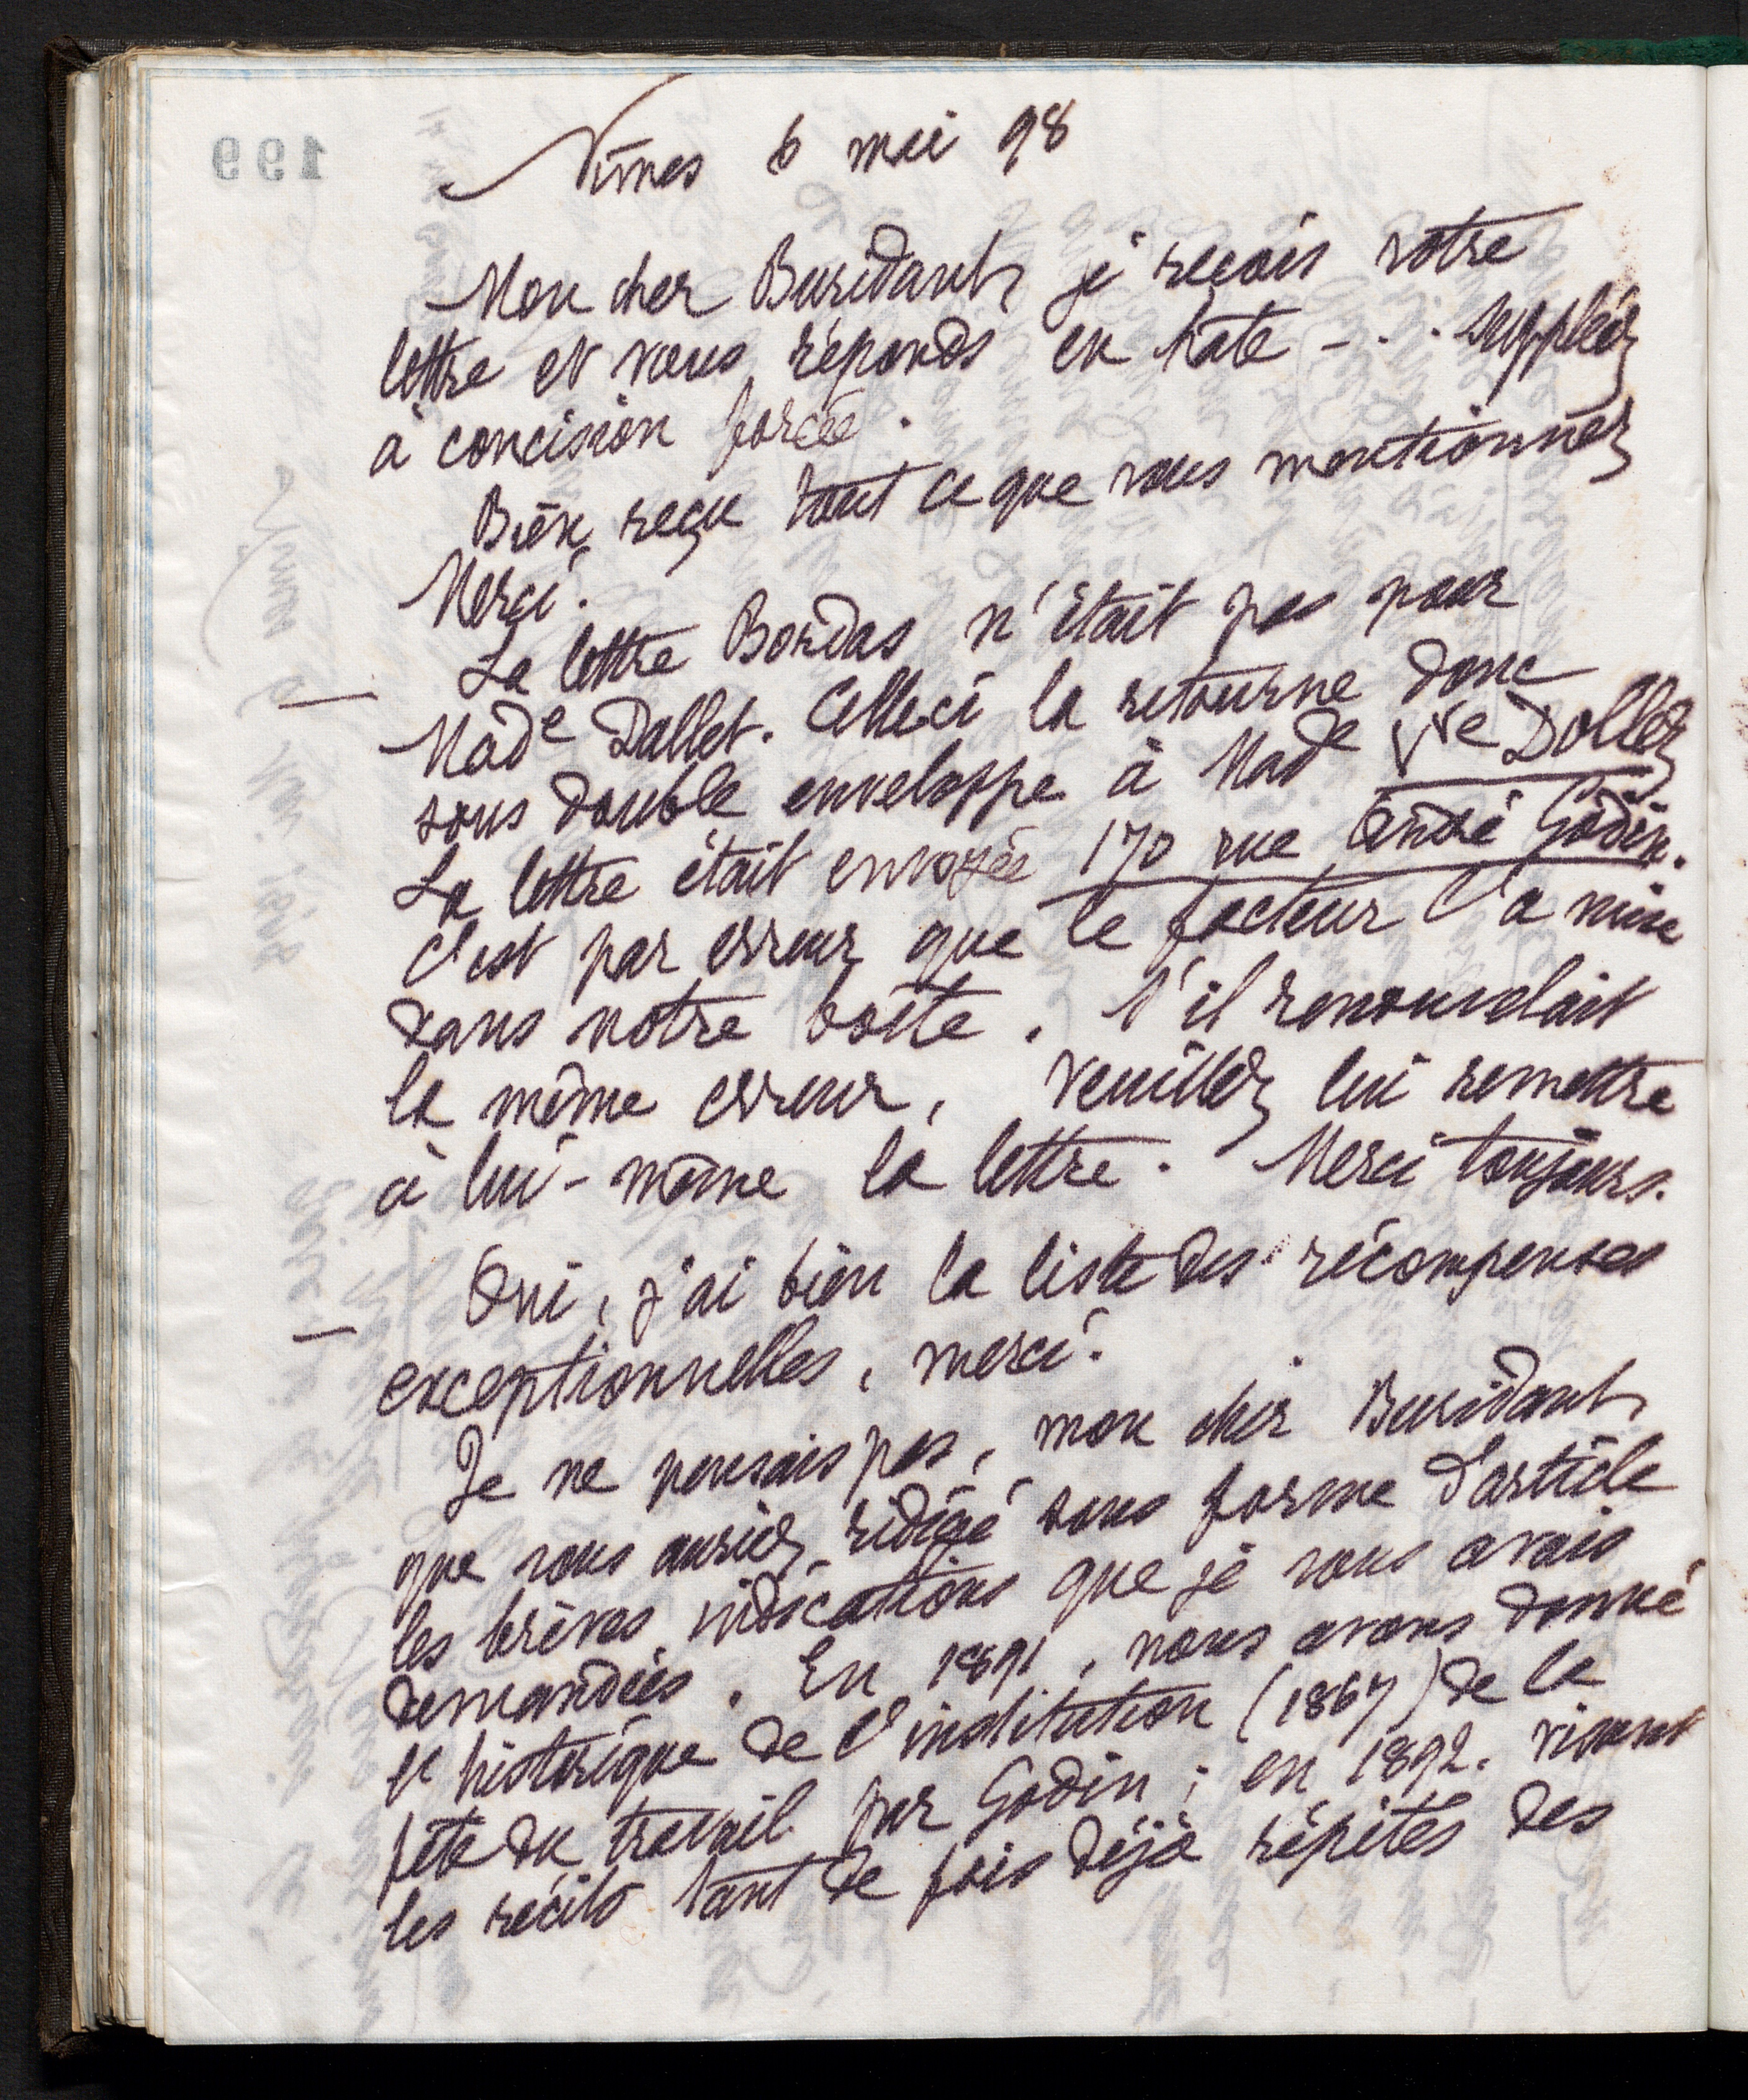 199
Nîmes 6 mai 98
Mon cher Buridant, je reçois votre
lettre et vous réponds en hâte - . . suppléez
à concision forcée.
Bien reçu tout ce que vous mentionnez
Merci.
— La lettre Bordas n'était pas pour
Made Dallet. Celle-ci la retourne donc
sous double enveloppe à Made Vve Dollez
La lettre était envoyée 170 rue André Godin.
C'est par erreur que le facteur l'a mise
dans notre boîte. S'il renouvelait
la même erreur, veuillez lui remettre
à lui-même la lettre. Merci toujours.
— Oui, j'ai bien la liste des récompenses
exceptionnelles, merci.
Je ne pensais pas, mon cher Buridant,
que vous auriez rédigé sous forme d'article
les brèves indications que je vous avais
demandées. En 1891, nous avons donné
l'historique de l'institution (1867) de la
fête du travail par Godin ; en 1892. vinrent
les récits tant de fois déjà répétés des